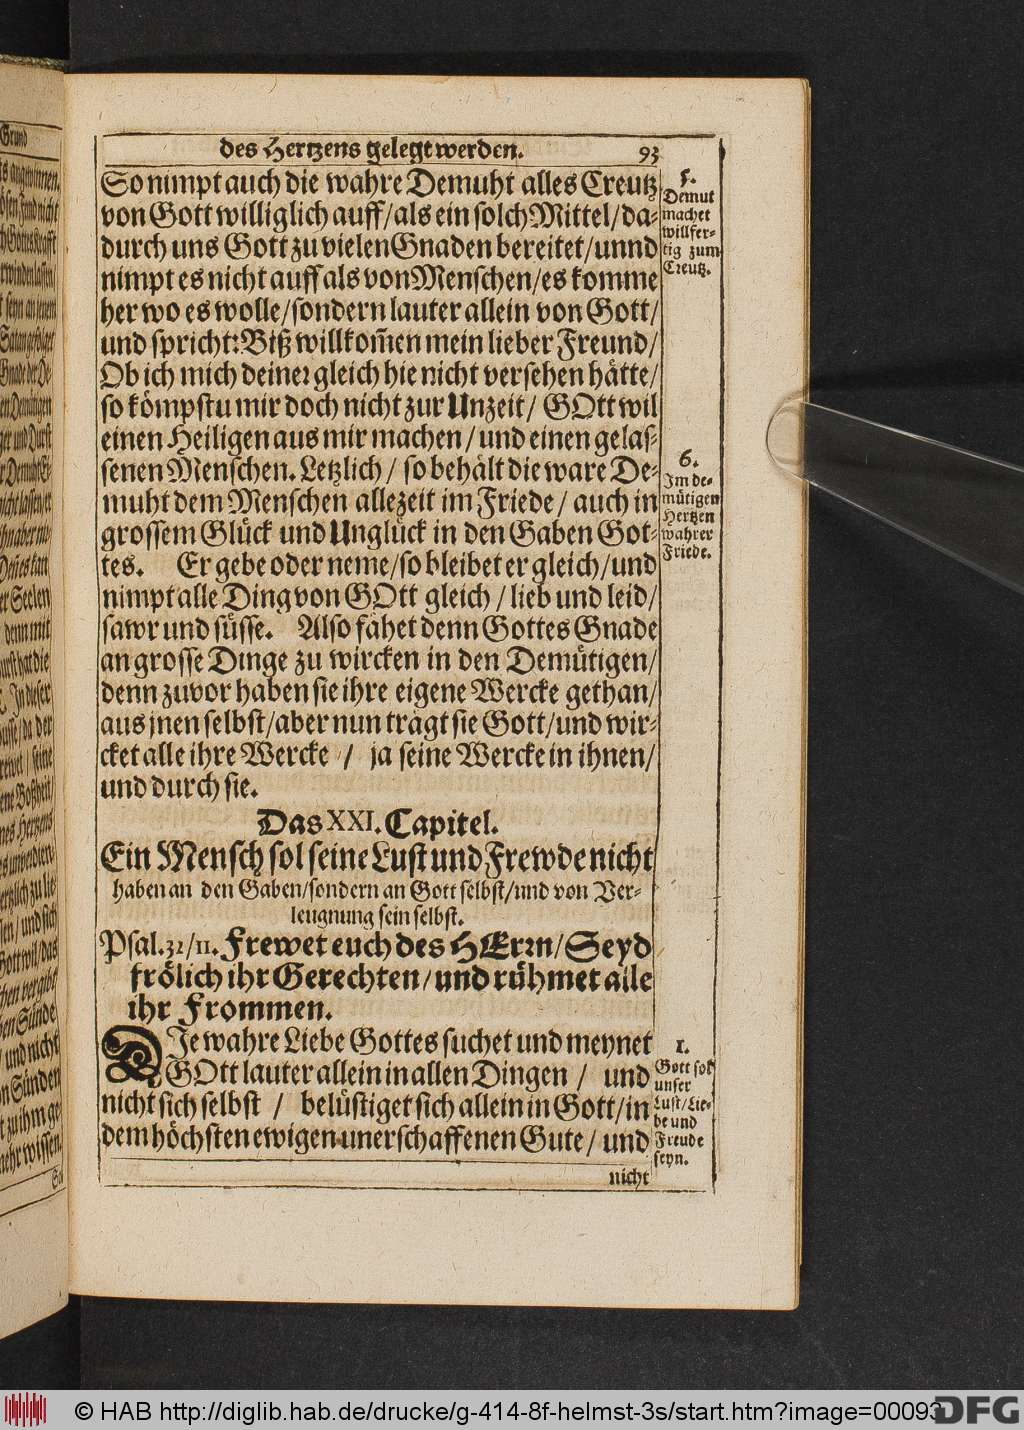 des Hertzens gelegt werden. 93
So nimpt auch die wahre Demuht alles Creutz
von Gott williglich auff/als ein solch Mittel/da-
durch uns Gott zu vielen Gnaden bereitet/unnd
nimpt es nicht auff als von Menschen/es komme
her wo es wolle/sondern lauter allein von Gott/
und spricht: Biß willkom̃en mein lieber Freund/
Ob ich mich deiner gleich hie nicht versehen hätte/
so kömpstu mir doch nicht zur Unzeit/ GOtt wil
einen Heiligen aus mir machen/und einen gelas-
senen Menschen. Letzlich/ so behält die ware De-
muht dem Menschen allezeit im Friede/ auch in
grossem Glück und Unglück in den Gaben Got-
tes. Er gebe oder neme/so bleibet er gleich/und
nimpt alle Ding von GOtt gleich/lieb und leid/
sawr und süsse. Also fähet denn Gottes Gnade
an grosse Dinge zu wircken in den Demütigen/
denn zuvor haben sie ihre eigene Wercke gethan/
aus jnen selbst/aber nun trägt sie Gott/und wir-
cket alle ihre Wercke / ja seine Wercke in ihnen/
und durch sie.
5.
Demut
machet
willfer-
tig zum
Creutz.
6.
Im de-
mütigen
Hertzen
wahrer
Friede.
Das XXI. Capitel.
Ein Mensch sol seine Lust und Frewde nicht
haben an den Gaben/sondern an Gott selbst/und von Ver-
leugnung sein selbst.
Psal. 32/11. Frewet euch des HErrn/Seyd
frölich ihr Gerechten/und rühmet alle
ihr Frommen.
DIe wahre Liebe Gottes suchet und meynet
GOtt lauter allein in allen Dingen / und
nicht sich selbst / belüstiget sich allein in Gott/in
dem höchsten ewigen unerschaffenen Gute/ und
1.
Gott sol
unser
Lust/Lie-
be und
Freude
seyn.
nicht
© HAB http://diglib.hab.de/drucke/g-414-8f-helmst-3s/start.htm?image=00093
DFG